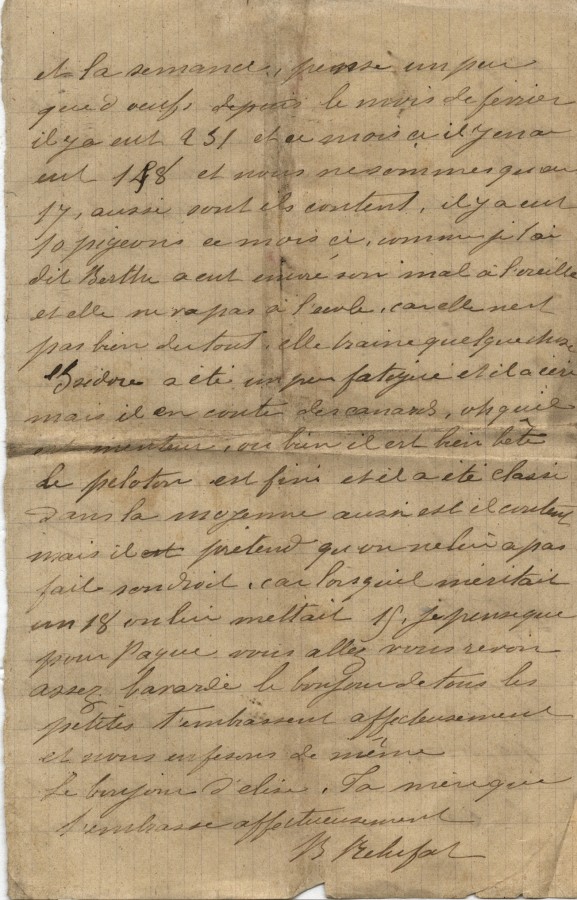 et la semance, pense un peu
que d'oeufs depuis le mois de fevrier
il y a eut 251 et ce mois ci il y en a
eut 148 et nous ne sommes quau
17, aussi sont ils content, il y a eut
10 pigeons ce mois ci, comme je t'ai
dit Berthe a eut encore son mal à l'oreille
et elle ne va pas à l'ecole, car elle nest
pas bien du tout, elle traine quelque chose
Isidore a été un peu fatigué et il a
mais il en conte des canards, quil
est menteur, ou bien il est bien bête
Le peloton est fini et il a été classé
dans la moyenne aussi est il content
mais il prétend qu'on ne lui a pas
fait son droit, car lorsquil méritait
un 18 on lui mettait 15, je pense que
pour Paque vous allez vous revoir
assez bavardé le bonjour de tous les
petites t'embassent affectueusement
et nous enfesons de même
Le bonjour d'elise, Ta mère que
t'embasse affectueusement
B Rehufat